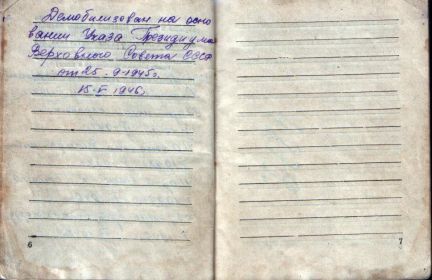 Демобилизован на осно
вании Указа Президиума
Верховного Совета СССР
от 25-9-1945г.
15-V 1946г
6
7